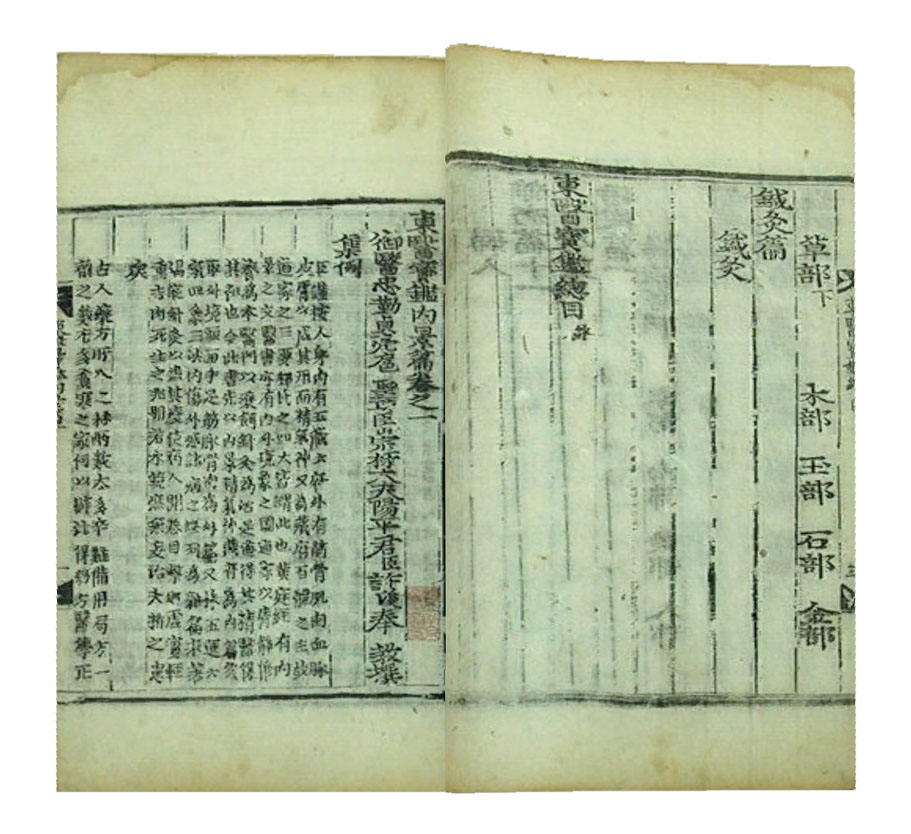 草部下 木部 玉部 石部 金部
鍼灸篇
鍼灸
東醫寶鑑總目 終
東醫寶鑑內景篇卷之一
御醫忠勤貞亮扈 聖功臣崇祿大夫陽平君臣許浚奉 教撰
集例
臣謹按人身內有五藏六府外有筋骨肌肉血脉
皮膚以成其形而精氣神又爲藏府百體之主故
道家之三要釋氏之四大皆謂此也黃庭經有內
景之文醫書亦有內外境象之圖道家以淸靜修
養爲本醫門以藥餌鍼灸爲治是道得其精醫得
其粗也今此書先以內景精氣神藏府爲內篇次
取外境頭面手足筋脉骨肉爲外篇又採五運六
氣四象三法內傷外感諸病之證列爲雜篇末著
湯液鍼灸以盡其變使病人開卷目擊則虛實輕
重吉凶死生之兆明若水鏡庶無妄治夭折之患
矣
古人藥方所入之材兩數太多卒難備用局方一
劑之數尤多貧寒之家何以辦此得効方醫學正